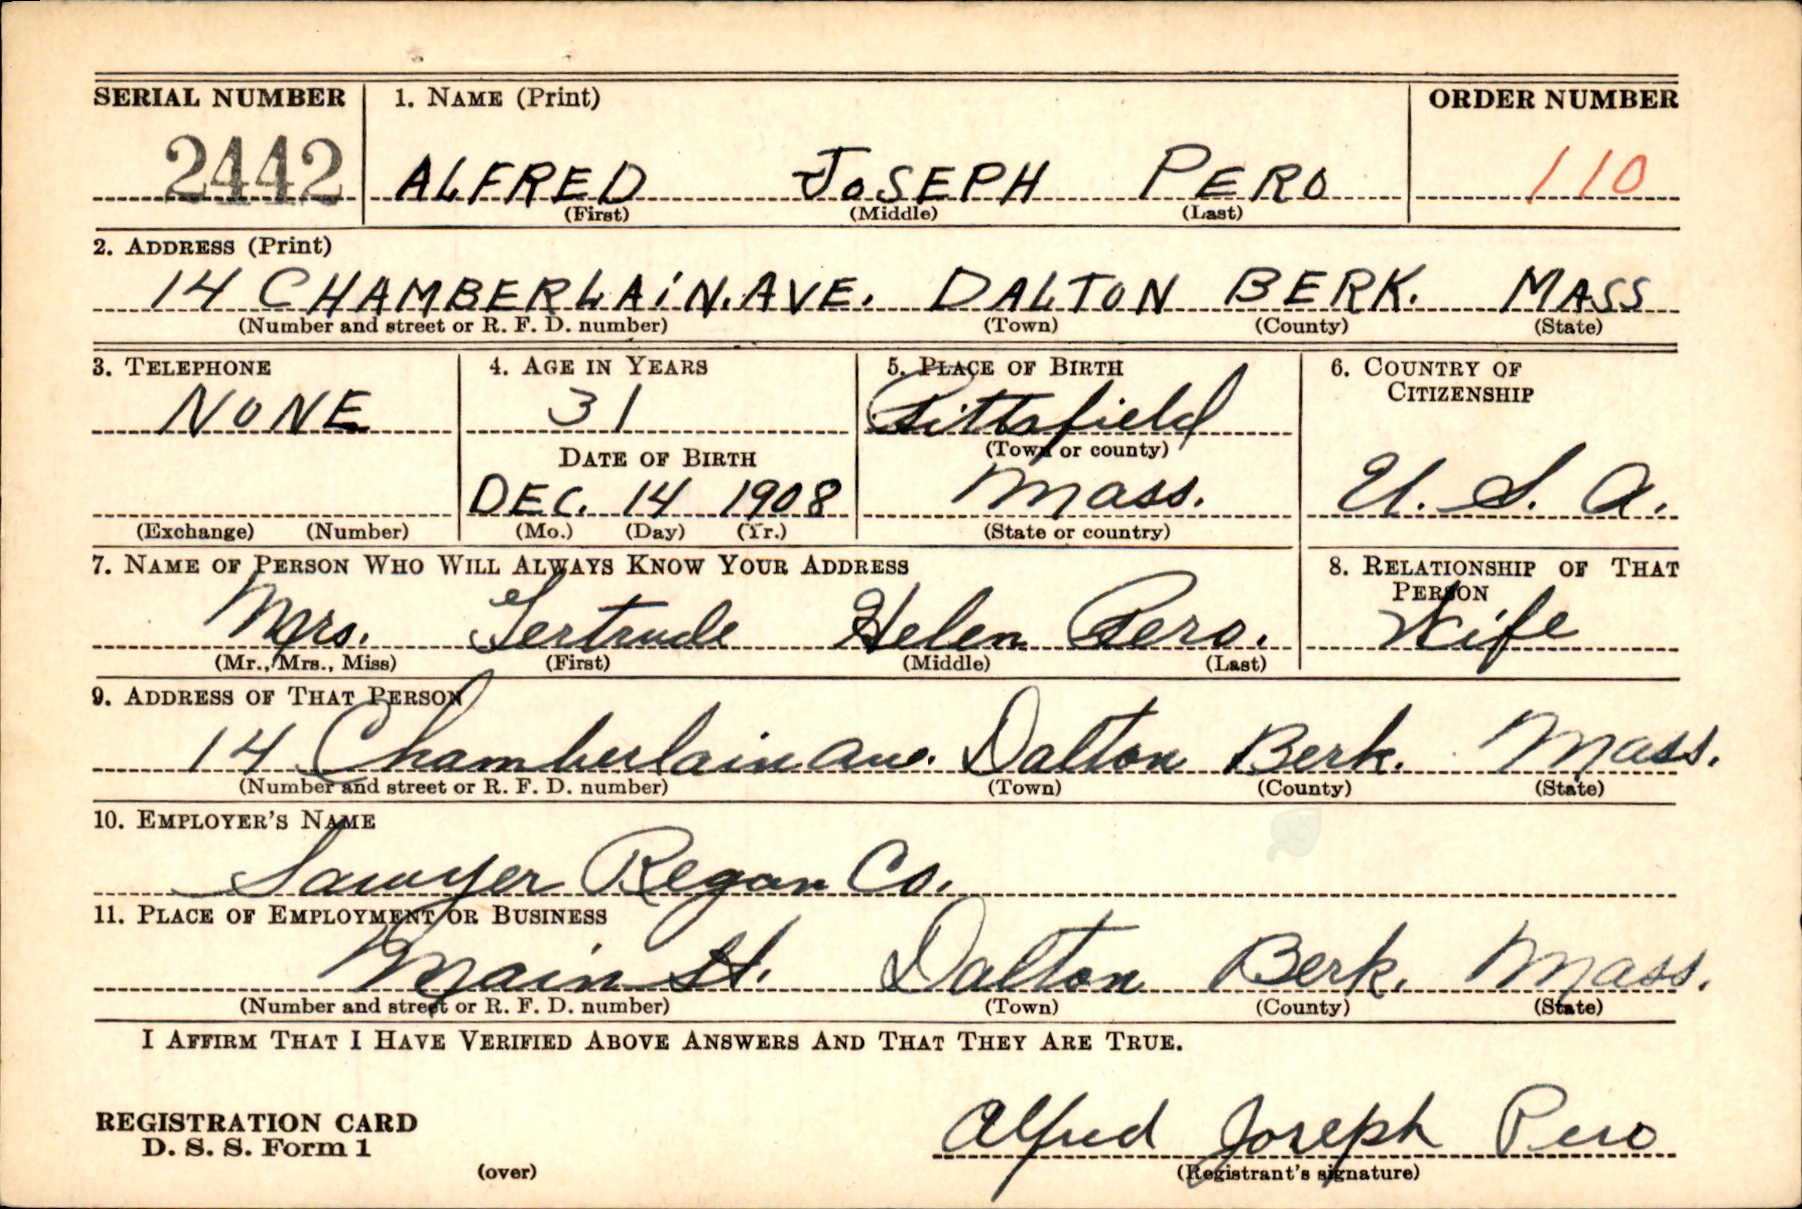 SERIAL NUMBER 1. NAME (Print) ORDER NUMBER
2442 ALFRED JOSEPH PERO 110
(First) (Middle) (Last)
2. ADDRESS (Print)
14 CHAMBERLAIN. AVE. DALTON BERK. MASS
(Number and street or R. F. D. number) (Town) (County) (State)
3. TELEPHONE 4. AGE IN YEARS 5. PLACE OF BIRTH 6. COUNTRY OF
CITIZENSHIP
NONE 31 Pittsfield
(Town or county)
DATE OF BIRTH
DEC. 14 1908 Mass. U. S. A.
(Exchange) (Number) (Mo.) (Day) (Yr.) (State or country)
7. NAME OF PERSON WHO WILL ALWAYS KNOW YOUR ADDRESS 8. RELATIONSHIP OF THAT
PERSON
Mrs. Gertrude Helen Pero. Wife
(Mr., Mrs., Miss) (First) (Middle) (Last)
9. ADDRESS OF THAT PERSON
14 Chamberlain Ave. Dalton Berk. Mass.
(Number and street or R. F. D. number) (Town) (County) (State)
10. EMPLOYER'S NAME
Sawyer Regan Co.
11. PLACE OF EMPLOYMENT OR BUSINESS
Main St. Dalton Berk. Mass.
(Number and street or R. F. D. number) (Town) (County) (State)
I AFFIRM THAT I HAVE VERIFIED ABOVE ANSWERS AND THAT THEY ARE TRUE.
REGISTRATION CARD
D. S. S. Form 1
Alfred Joseph Pero
(over) (Registrant's signature)